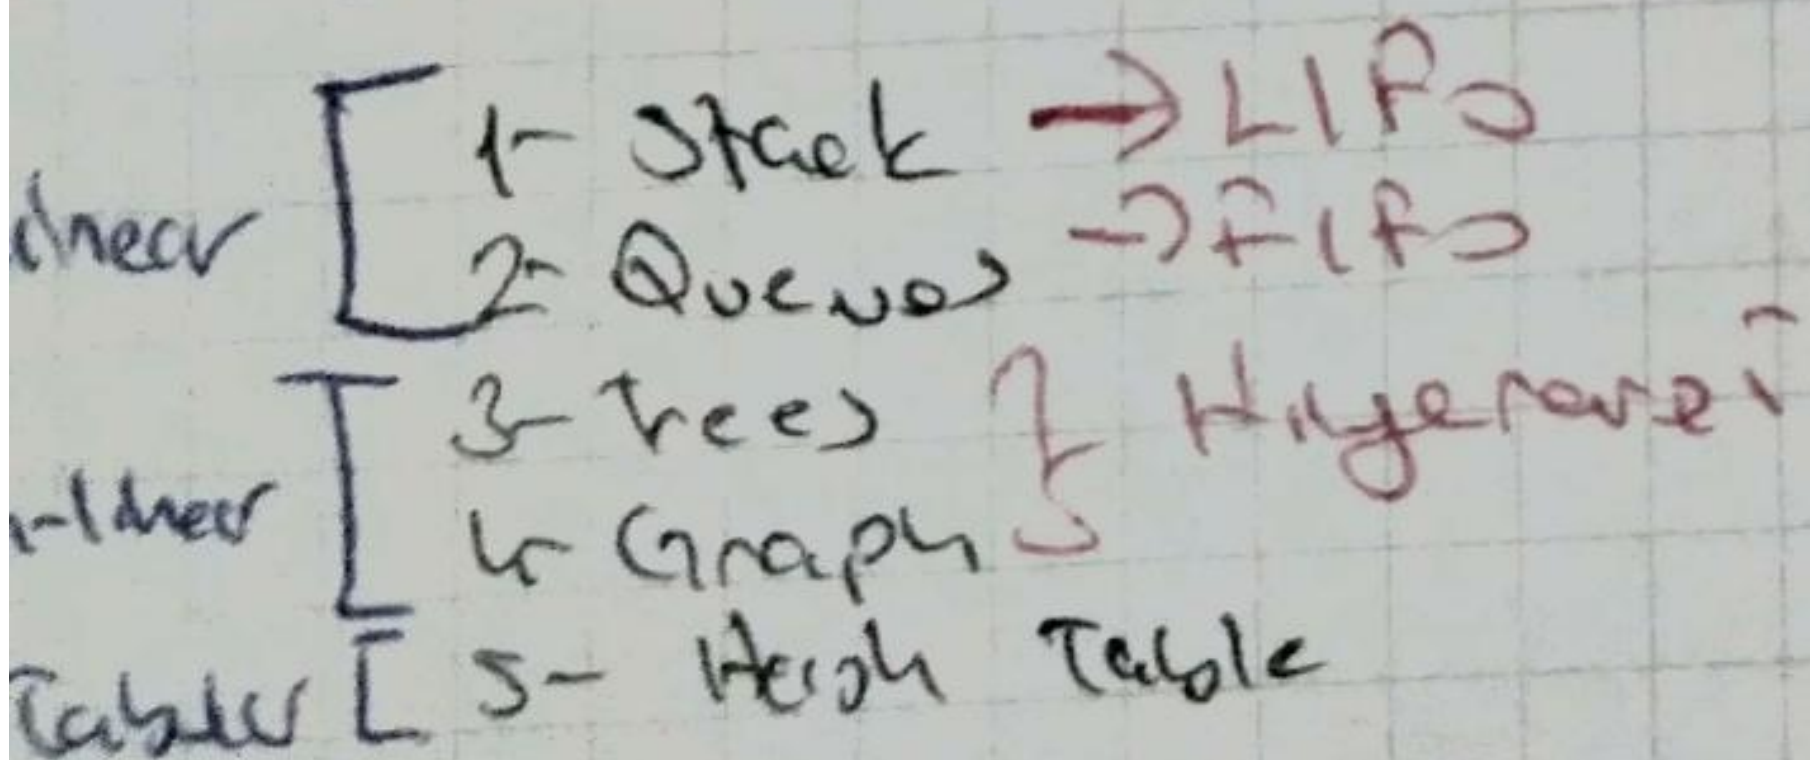 linear 1- Stack → LIFO
2- Queues → FIFO
n-linear 3- Trees } Hiyerarşi
4- Graph
Tabler 5- Hash Table